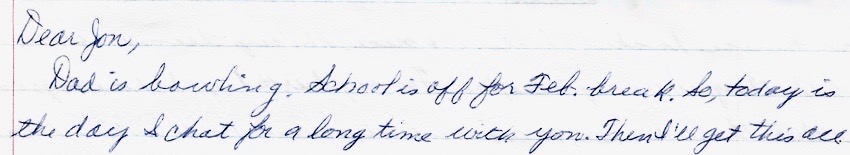 Dear Jon,
Dad is bowling. School is off for Feb. break. So, today is
the day I chat for a long time with you. Then I'll get this all